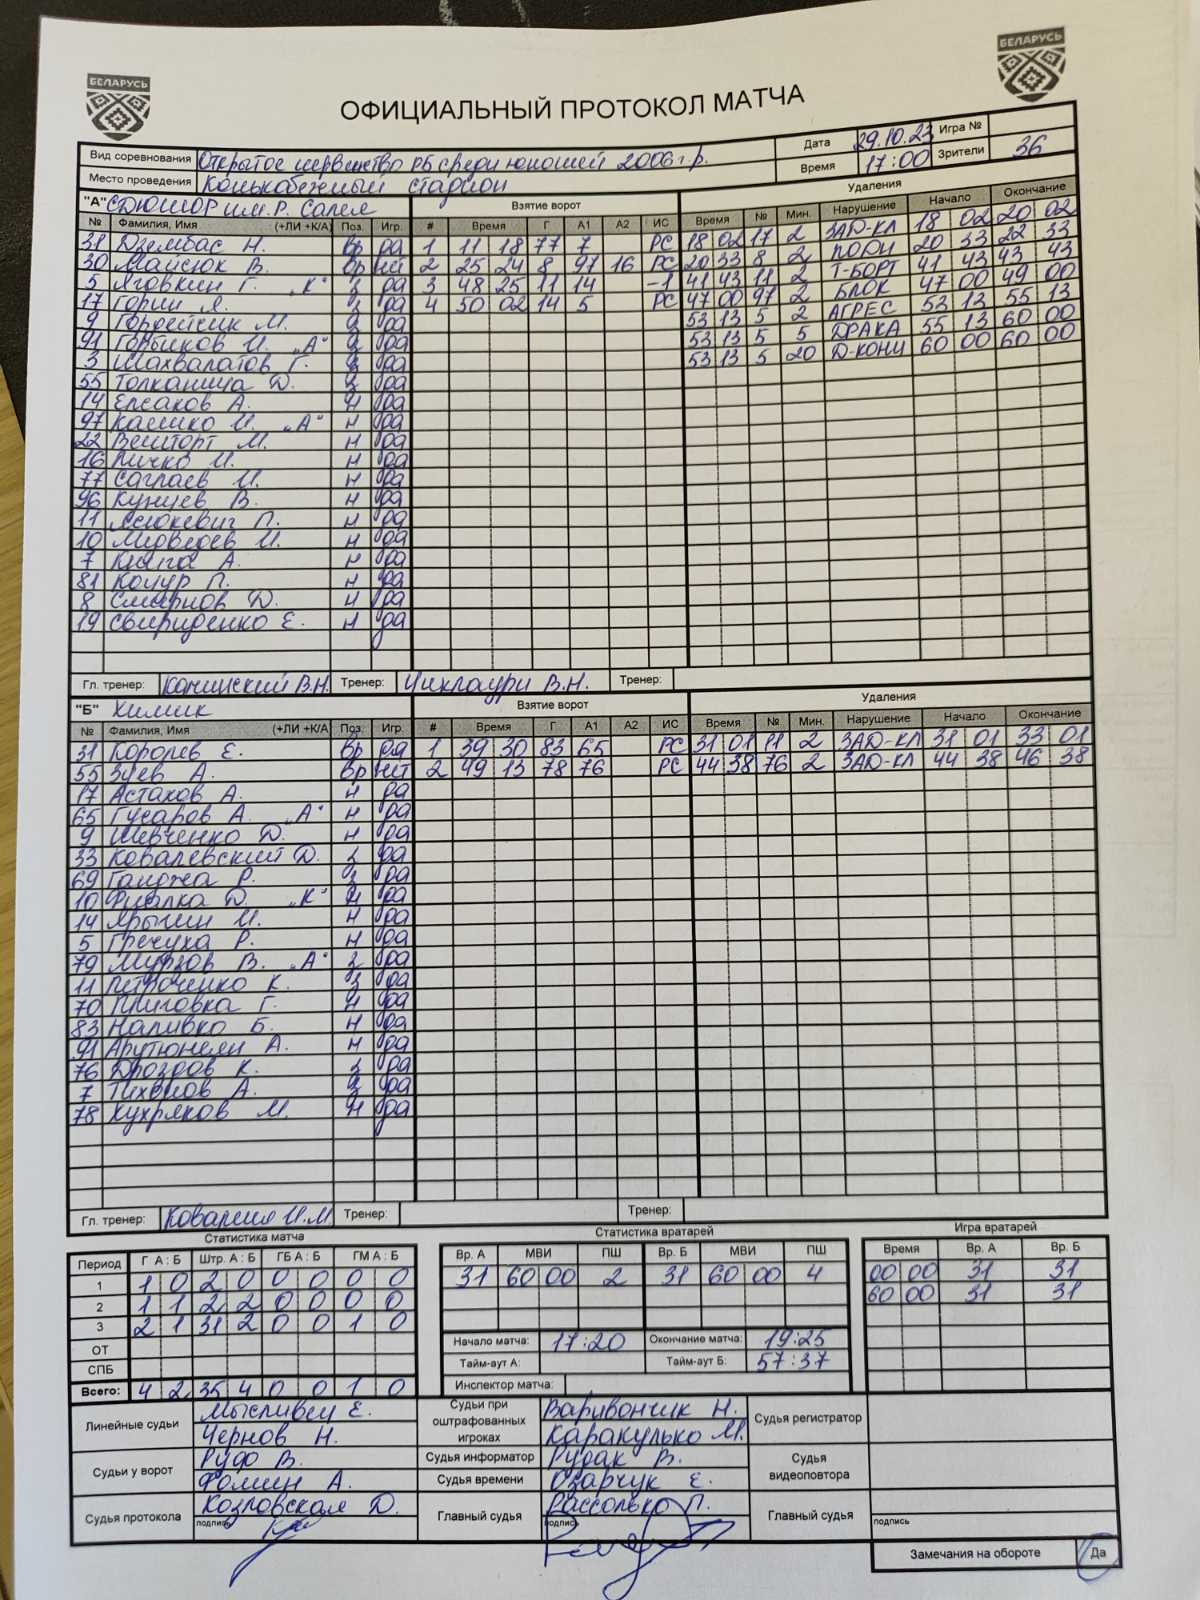 БЕЛАРУСЬ
БЕЛАРУСЬ
ОФИЦИАЛЬНЫЙ ПРОТОКОЛ МАТЧА
Вид соревнования Открытое первенство РБ среди юношей 2006 г.р. Дата 29.10.23 Игра №
Место проведения Конькобежный стадион Время 17:00 Зрители 36
"А" СДЮШОР им. Р. Салея Взятие ворот Удаления
№ Фамилия, Имя (+ЛИ +К/А) Поз. Игр. # Время Г А1 А2 ИС Время № Мин. Нарушение Начало Окончание
31 Дзембас Н. Вр да 1 11 18 77 7 РС 18 02 17 2 ЗАД-КЛ 18 02 20 02
30 Майсюк В. Вр нет 2 25 24 8 91 16 РС 20 33 8 2 ПОДН 20 33 22 33
5 Яговкин Г. "К" З да 3 48 25 11 14 -1 41 43 11 2 Т-БОРТ 41 43 43 43
17 Горин Я. З да 4 50 02 14 5 РС 47 00 97 2 БЛОК 47 00 49 00
9 Гордейчик М. З да 53 13 5 2 АГРЕС 53 13 55 13
91 Горбиков И. "А" З да 53 13 5 5 ДРАКА 55 13 60 00
3 Махвалатов Г. З да 53 13 5 20 Д-КОНЦ 60 00 60 00
55 Толкачица Д. З да
14 Елсаков А. Н да
97 Касико И. "А" Н да
22 Вешторт М. Н да
16 Личко И. Н да
77 Саглаев И. Н да
96 Кунцев В. Н да
11 Ясюкевич П. Н да
10 Медведев И. Н да
7 Книга А. Н да
81 Коцур П. Н да
8 Смирнов Д. Н да
19 Свириденко Е. Н да
Гл. тренер: Качинский В.Н. Тренер: Чиклаури В.Н. Тренер:
"Б" Химик Взятие ворот Удаления
№ Фамилия, Имя (+ЛИ +К/А) Поз. Игр. # Время Г А1 А2 ИС Время № Мин. Нарушение Начало Окончание
31 Королев Е. Вр да 1 39 30 83 65 РС 31 01 11 2 ЗАД-КЛ 31 01 33 01
55 Зуев А. Вр нет 2 49 13 78 76 РС 44 38 76 2 ЗАД-КЛ 44 38 46 38
17 Астахов А. Н да
65 Гусаров А. "А" Н да
9 Шевченко Д. Н да
33 Ковалевский Д. З да
69 Ганджа Р. З да
10 Фиалка Д. "К" Н да
14 Ярыгин И. Н да
5 Гречуха Р. Н да
79 Мурзов В. "А" З да
11 Петроченко К. З да
70 Плиговка Г. Н да
83 Наливко Б. Н да
91 Арутюнян А. Н да
76 Дроздов К. З да
7 Тихонов А. З да
78 Кухряков М. Н да
Гл. тренер: Тренер: Тренер:
Статистика матча Статистика вратарей Игра вратарей
Период Г А : Б Штр. А : Б ГБ А : Б ГМ А : Б Вр. А МВИ ПШ Вр. Б МВИ ПШ Время Вр. А Вр. Б
1 1 0 2 0 0 0 0 0 31 60 00 2 31 60 00 4 00 00 31 31
2 1 1 2 2 0 0 0 0 60 00 31 31
3 2 1 31 2 0 0 1 0
ОТ Начало матча: 17:20 Окончание матча: 19:25
СПБ Тайм-аут А: Тайм-аут Б: 57:37
Всего: 4 2 35 4 0 0 1 0 Инспектор матча:
Линейные судьи Мысливец Е. Судьи при оштрафованных игроках Варивончик Н. Судья регистратор
Чернов Н. Каракулько М.
Судьи у ворот Рудо В. Судья информатор Рудак В. Судья видеоповтора
Фомин А. Судья времени Озарчук Е.
Судья протокола Козловская Д. Главный судья Рассолько П. Главный судья
подпись подпись подпись
Замечания на обороте Да